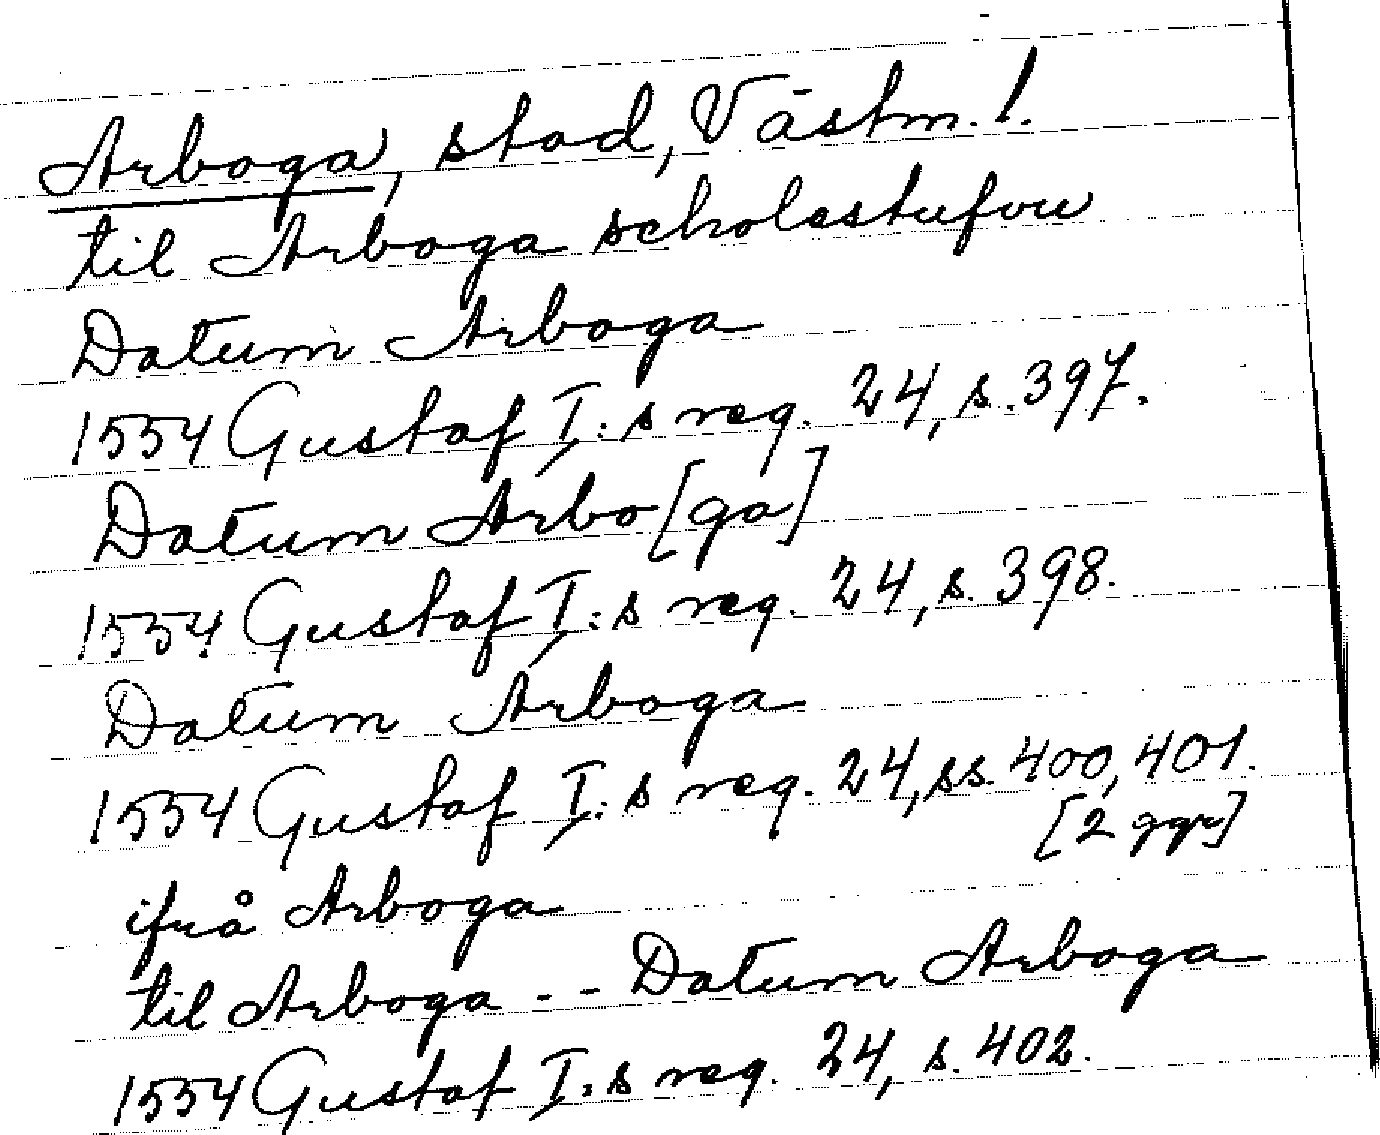 Arboga, stad, Västm. l.
til Arboga scholestufvu
Datum Arboga
1554 Gustaf I:s reg. 24, s. 397.
Datum Arbo[ga]
1554 Gustaf I:s reg. 24, s. 398.
Datum Arboga
1554 Gustaf I:s reg. 24, ss. 400, 401.
[2 ggr]
ifrå Arboga
til Arboga - - Datum Arboga
1554 Gustaf I:s reg. 24, s. 402.